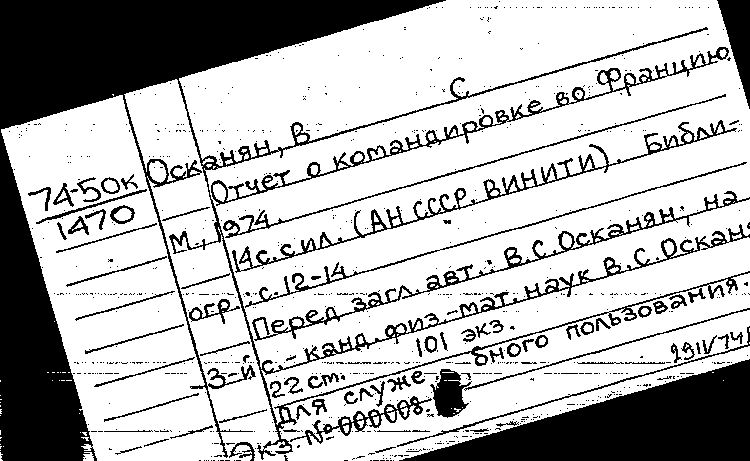 74-50к
1470
Осканян, В С
Отчет о командировке во Францию.
М., 1974.
14с. с ил. (АН СССР. ВИНИТИ). Библи-
огр.: с. 12-14.
Перед загл. авт.: В.С.Осканян; на
3-й с.- канд. физ.-мат. наук В.С.Оскан
22 cm. 101 экз.
Для служебного пользования.
Экз. №000008.